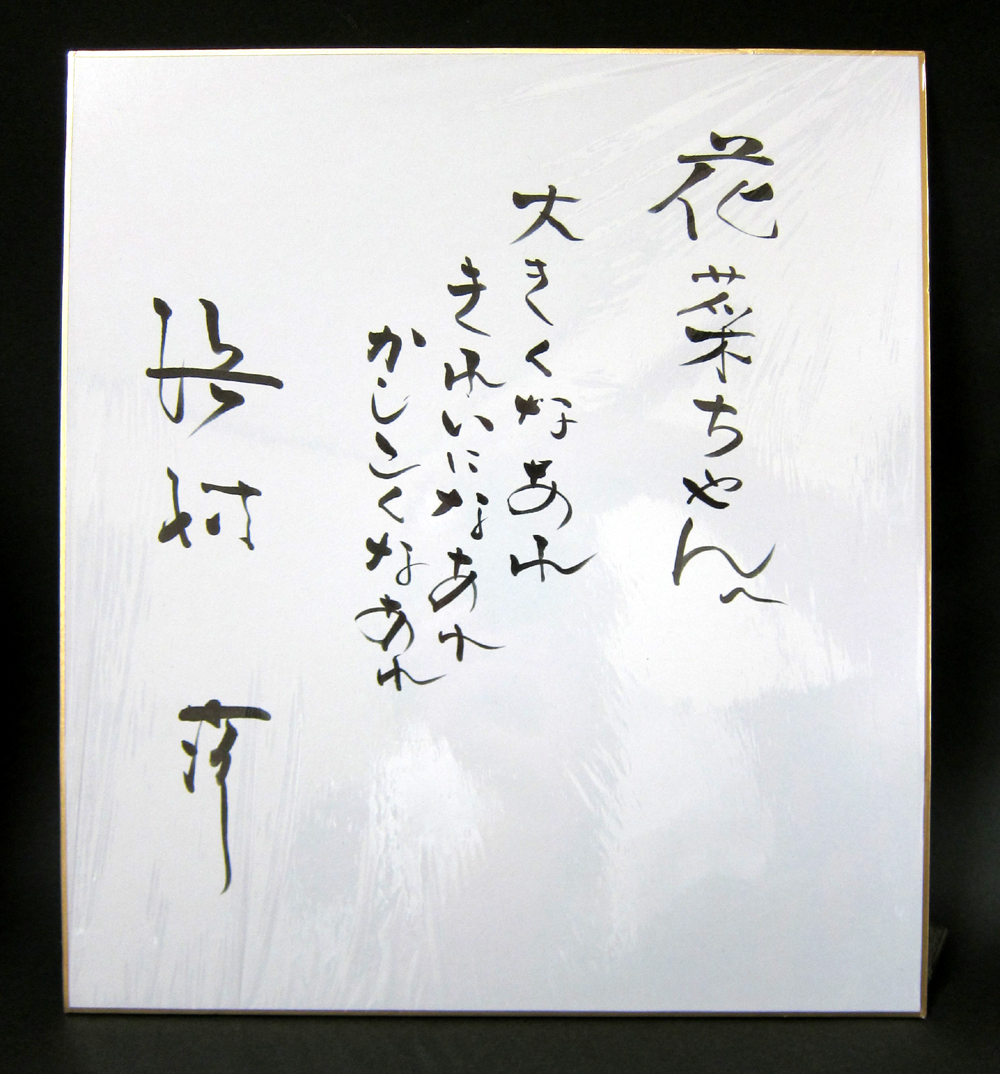 花菜ちゃんへ
大きくなあれ
きれいになあれ
かしこくなあれ
浜村淳